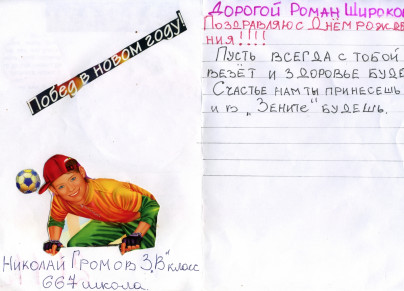 Побед в новом году!
Николай Громов 3„В" класс
667 школа.
Дорогой Роман Широков
Поздравляю с Днём рожде
ния!!!!
Пусть всегда с тобой
везёт и здоровье буде
Счастье нам ты принесешь
и в „Зените" будешь.